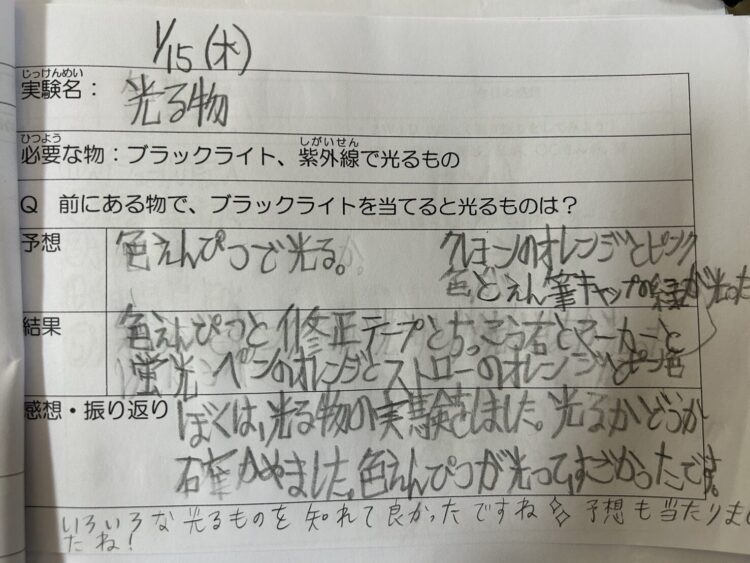 1/15(木)
じっけんめい
実験名：
光る物
ひつよう
しがいせん
必要な物：ブラックライト、紫外線で光るもの
Q 前にある物で、ブラックライトを当てると光るものは？
予想
色えんぴつで光る。
クレヨンのオレンジとピンク
色とえん筆キャップの緑が光った
結果
色えんぴつと修正テープとちっこう石とマーカーと
蛍光ペンのオレンジとストローのオレンジとピン色
感想・振り返り
ぼくは、光る物の実験をしました。光るかどうか
石をかめました。色えんぴつが光って、すごかったです。
いろいろな光るものを知れて良かったですね 予想も当たりまし
たね！